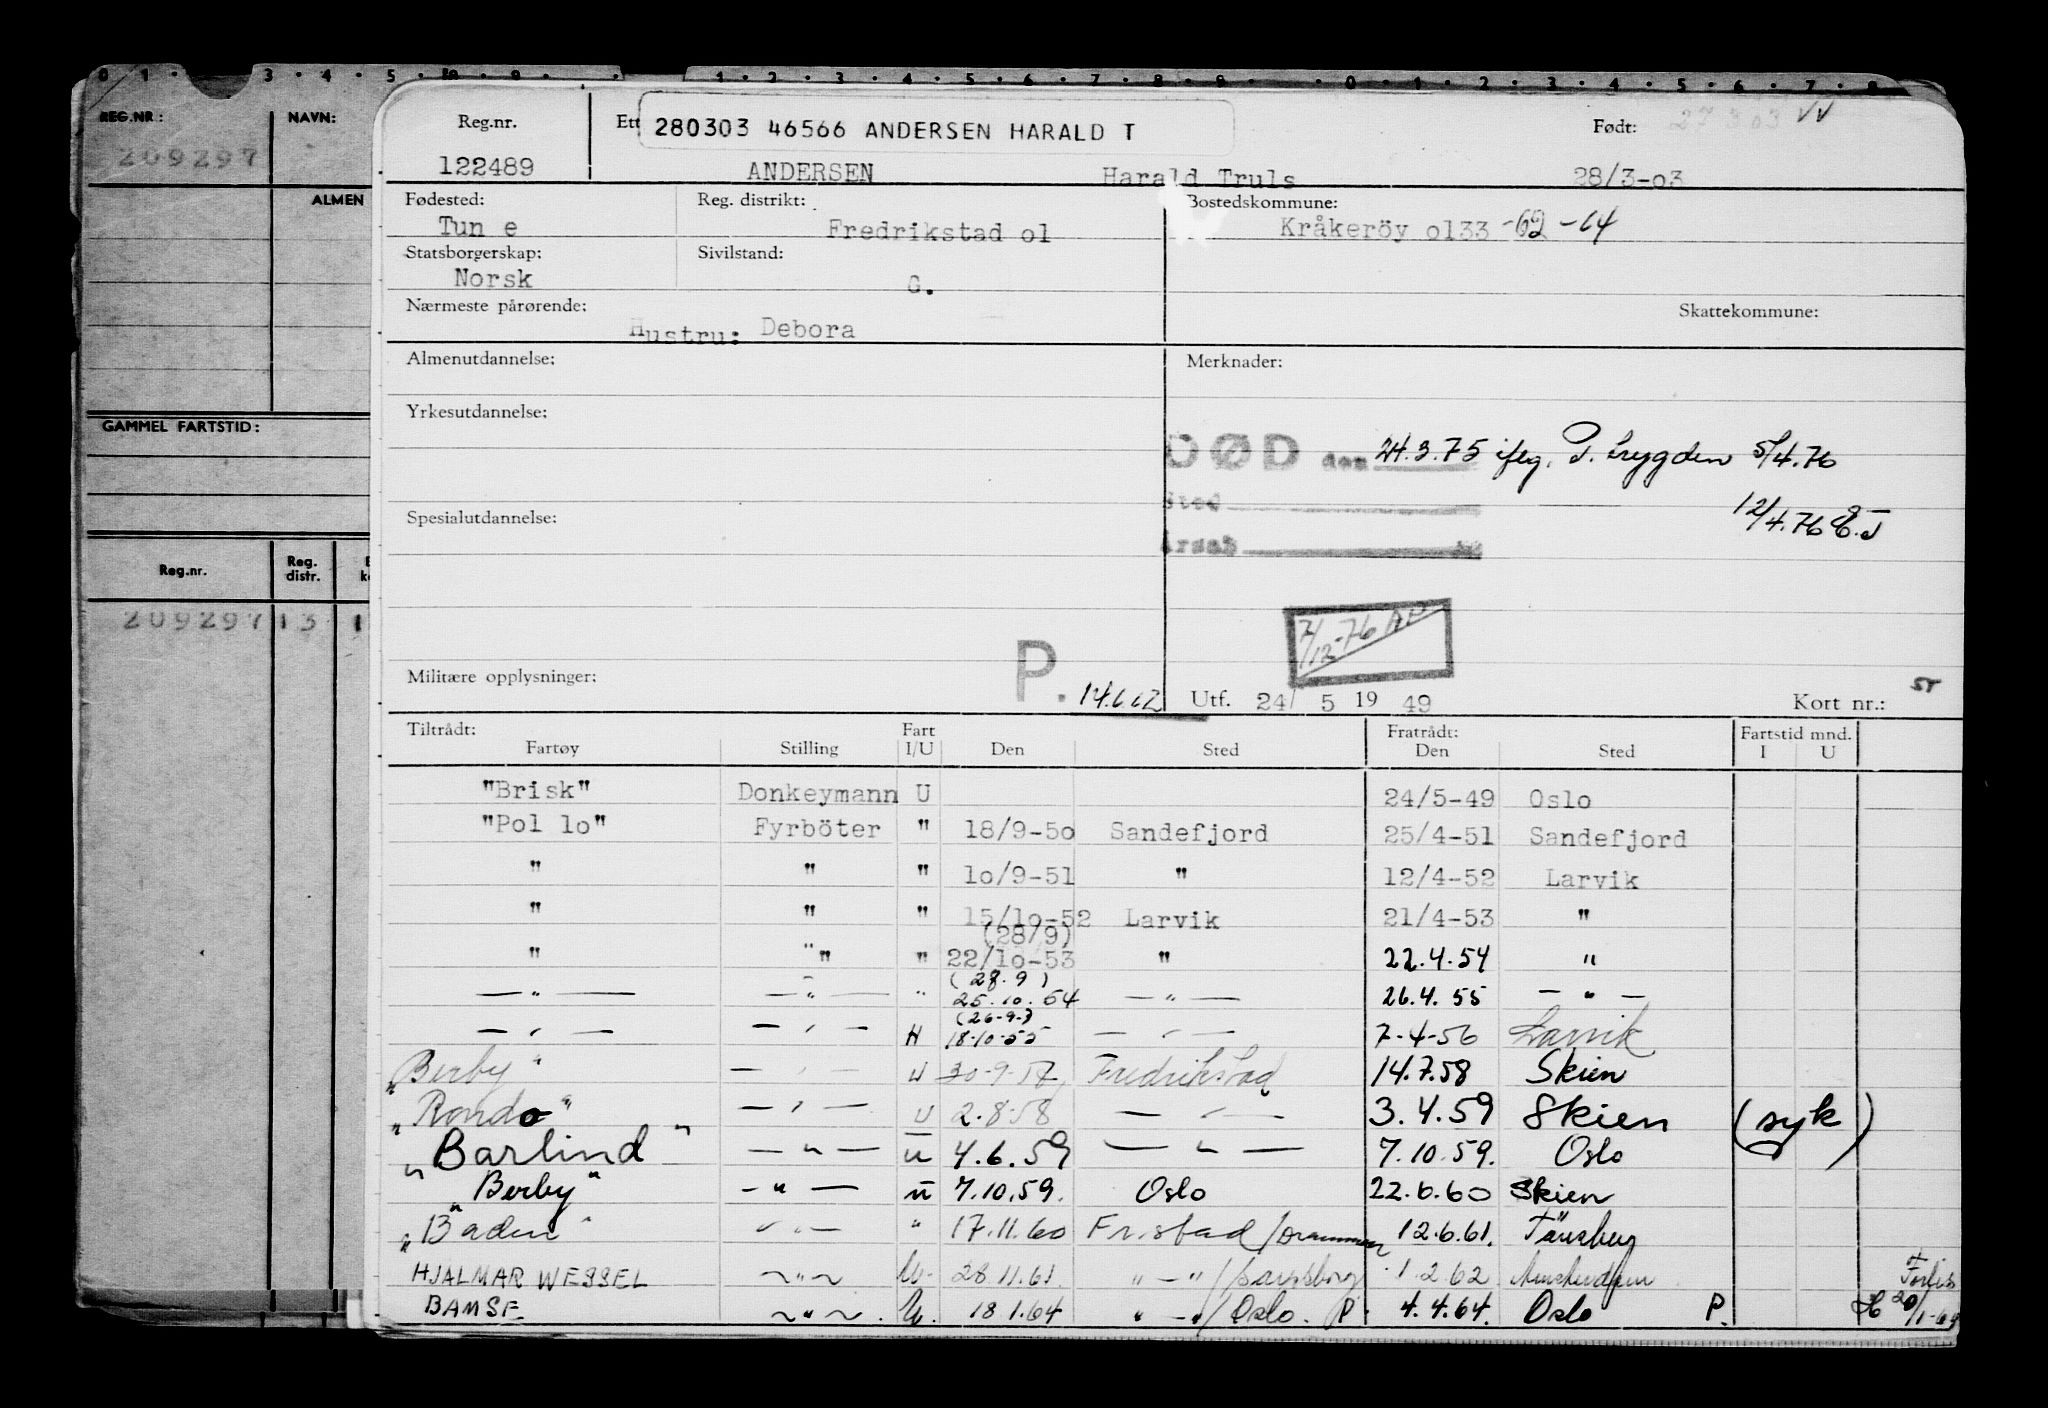 REG.NR.: NAVN:
209297
ALMEN
GAMMEL FARTSTID:
Reg.nr. Reg. distr.
209297 13 1
Reg.nr. Ett 280303 46566 ANDERSEN HARALD T Født: 27 3 03 VV
122489 ANDERSEN Harald Truls 28/3-o3
Fødested: Reg. distrikt: Bostedskommune:
Tun e Fredrikstad ol Kråkeröy ol33 -62 -64
Statsborgerskap: Sivilstand:
Norsk G.
Nærmeste pårørende: Skattekommune:
Hustru: Debora
Almenutdannelse: Merknader:
Yrkesutdannelse:
DØD den 24.3.75 iflg. P. trygden 5/4.76
Sted
Årsak
12/4.76 E.J
Spesialutdannelse:
7/12-76 AP
Militære opplysninger: P. 14.6.62 Utf. 24/ 5 19 49 Kort nr.:
Tiltrådt: Fart Fratrådt: Fartstid mnd.
Fartøy Stilling I/U Den Sted Den Sted I U
"Brisk" Donkeymann U 24/5-49 Oslo
"Pol lo" Fyrböter " 18/9-5o Sandefjord 25/4-51 Sandefjord
" " " lo/9-51 " 12/4-52 Larvik
" " " 15/lo-52 Larvik 21/4-53 "
(28/9)
" "" " 22/lo-53 " 22.4.54 "
(28.9)
— " — — " — " 25.10.54 — " — 26.4.55 — " —
(26-9-)
— " — — " — H 18-10-55 — " — 7-4-56 Larvik
"Berby" — " — U 30-9-57 Fredrikstad 14.7.58 Skien
"Rondo" — " — U 2.8.58 — " — 3.4.59 Skien (syk)
"Barlind" — " — U 4.6.59 — " — 7.10.59. Oslo
"Berby" — " — U 7.10.59. Oslo 22.6.60 Skien
"Baden" — " — " 17.11.60 Fr.stad/Drammen 12.6.61. Tönsberg
HJALMAR WESSEL ~ " ~ U. 28.11.61. " — "/Sarpsborg 1.2.62 Forlis
BAMSE ~ " ~ U. 18.1.64 " — "/Oslo. P. 4.4.64. Oslo P. 20/1-64